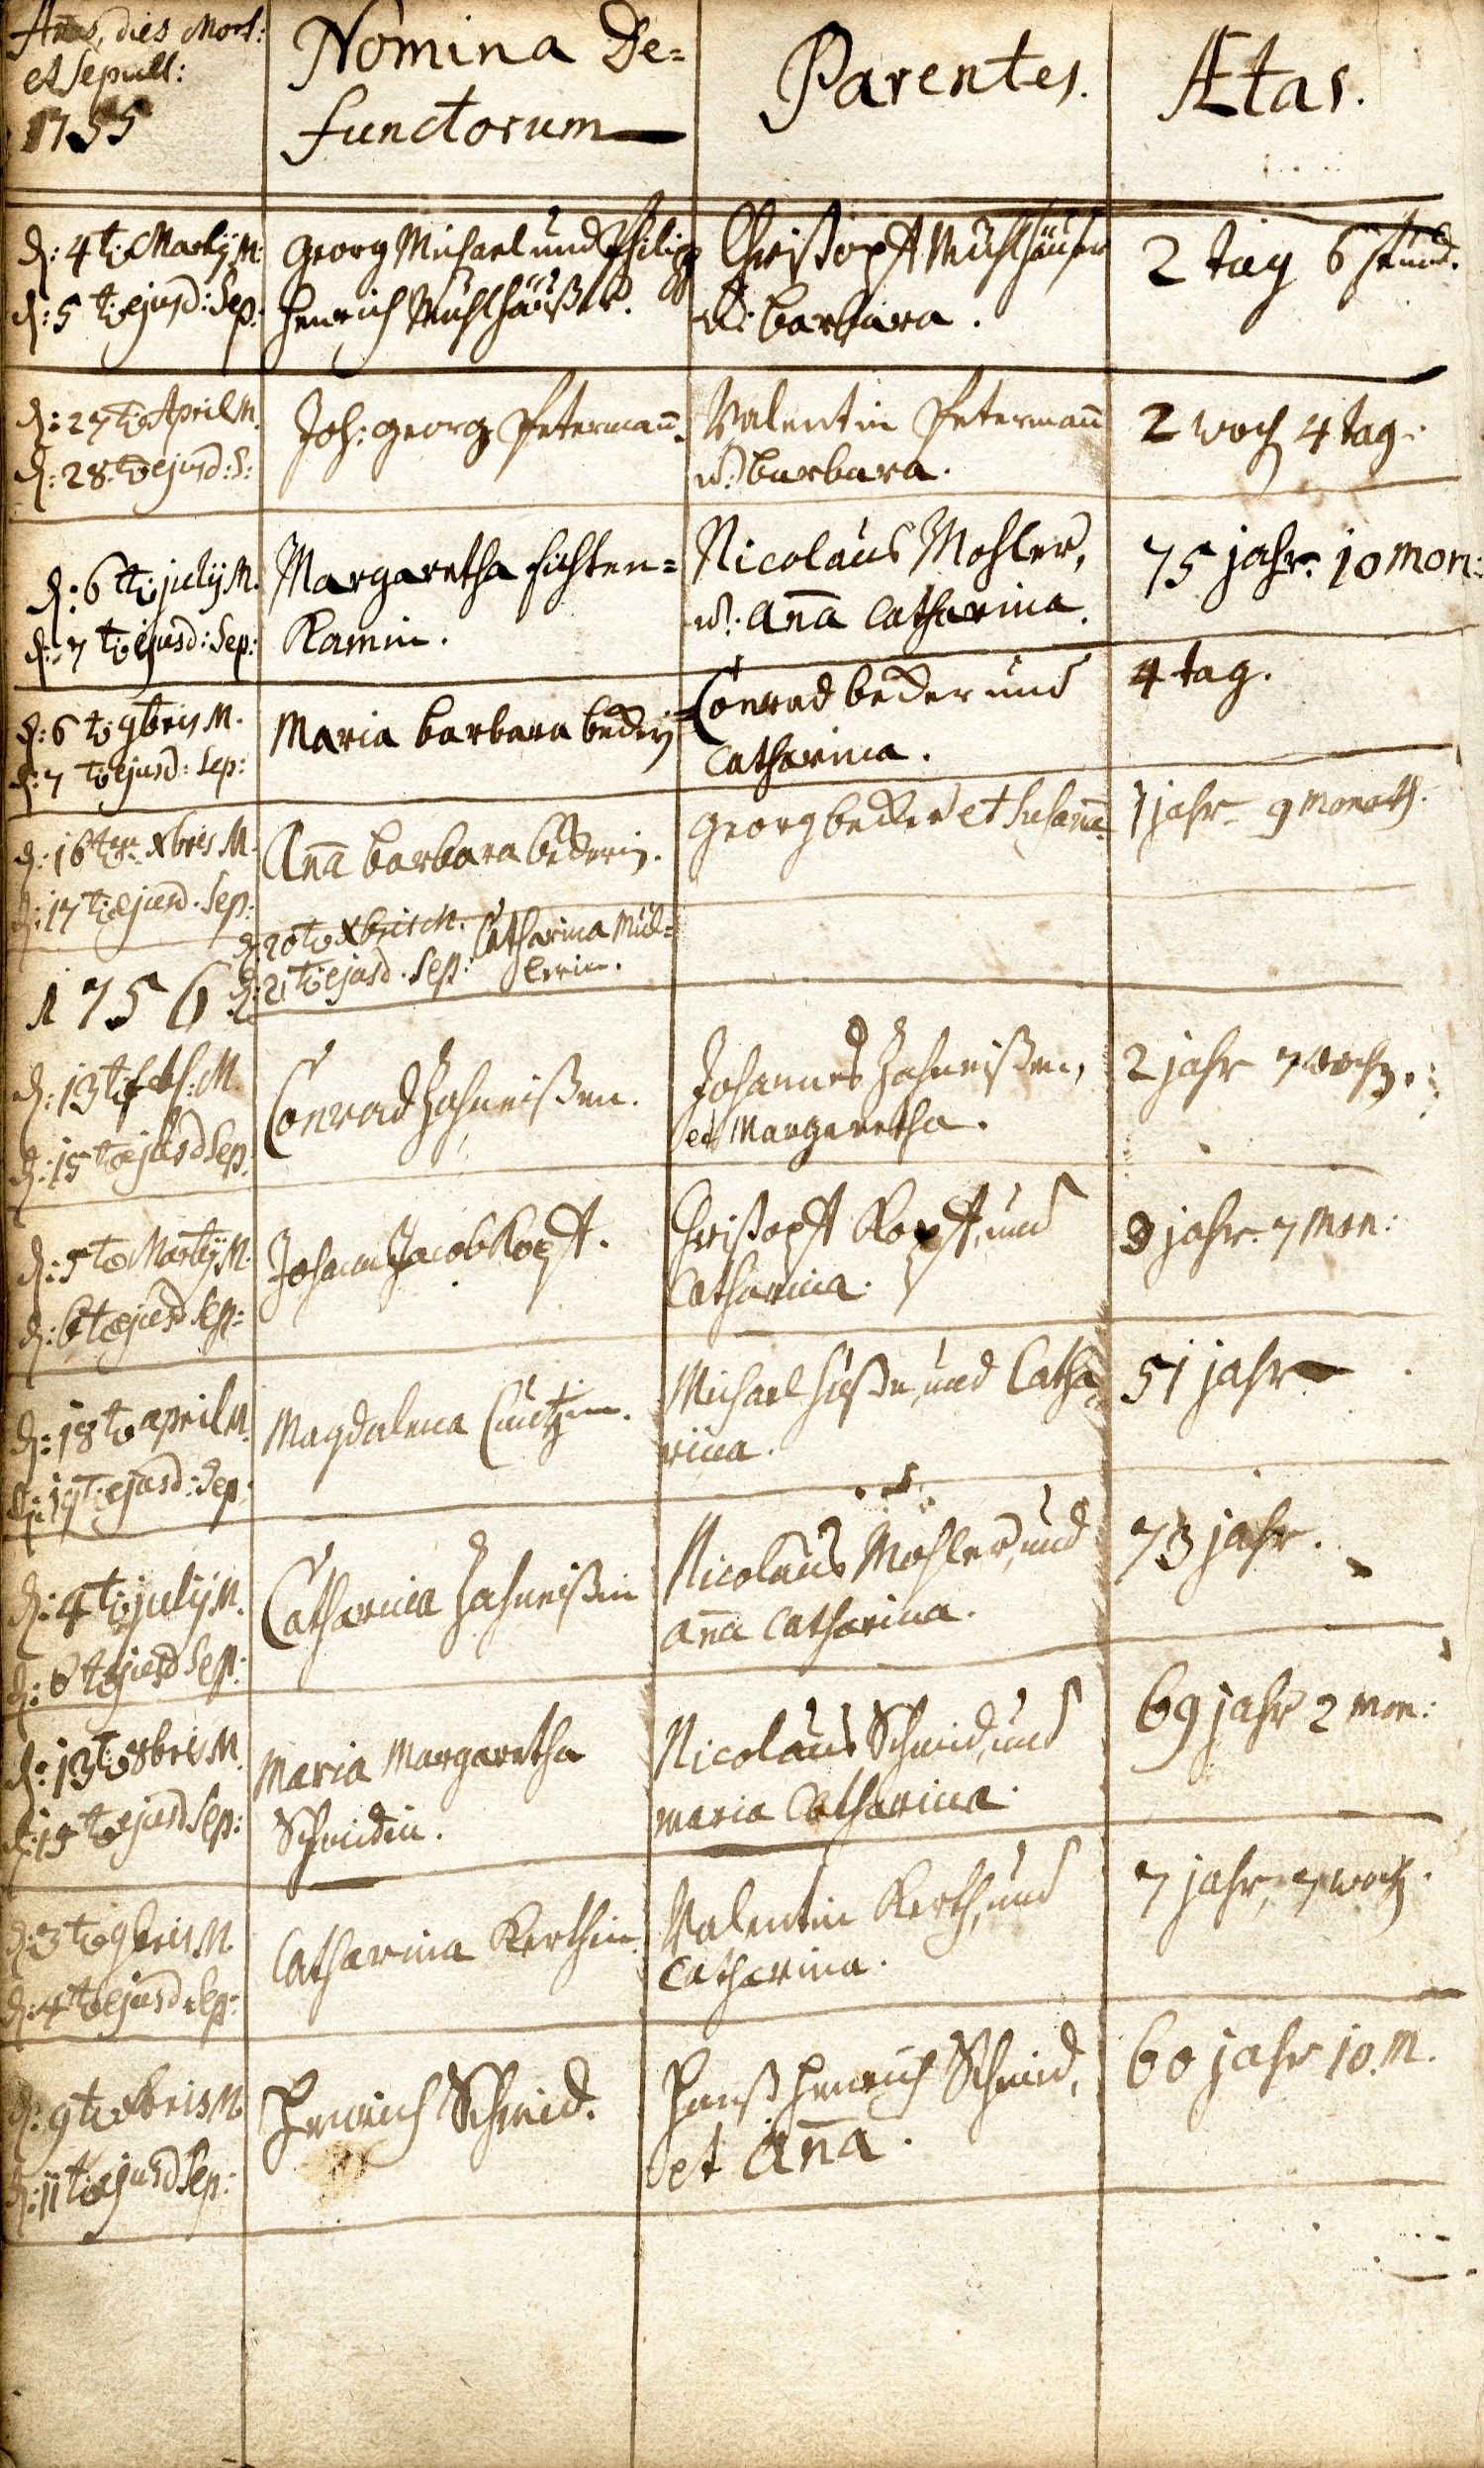 dies Mort:
et Sepult:
1755
Nomina De=
functorum
Parentes.
Ætas.
d: 4t: Martij M:
d: 5 t: ejusd: Sep:
Georg Michael und Philip
Henrich Mühlhäußer.
Christoph Mühlhäuser
u: barbara.
2 tag 6 stund.
d: 27 t: April M.
d: 28. t: ejusd: S:
Joh: georg Petermañ.
Valentin Petermañ
u: barbara.
2 woch 4 tag.
d: 6 t: julij M.
d: 7 t: ejusd: Sep:
Margaretha fichten=
Kamin.
Nicolaus Mohler,
u: Aña Catharina.
75 jahr. 10 Mon:
d: 6 t: 9bris M.
d: 7 t: ejusd: Sep:
Maria barbara bederj
Conrad beder und
Catharina.
4 tag.
d: 16 t: Xbris M.
d: 17 t: ejusd. Sep:
Aña barbara bederin.
georg beder et Susaña
1 jahr. 9 Monath.
d: 20 t: Xbris M.
d: 21 t: ejusd. Sep:
Catharina Mül=
lerin.
1756
d: 13 t: feb: M
d: 15 t: ejusd Sep.
Conrad Zahneißen.
Johannes Zahneißen,
et Margaretha.
2 jahr 7 woch.
d: 5 t: Martij M.
d: 6 t: ejusd Sep:
Johann Jacob Kopf.
Christoph Kopf, und
Catharina.
9 jahr. 7 Mon:
d: 18 t: april M.
d: 19 t: ejusd: Sep.
Magdalena Cuntzin.
Michael und Catha
rina.
51 jahr
d: 4 t: julij M.
d: 6 t: ejusd Sep:
Catharina Zahneißin
Nicolaus Mohler, und
aña Catharina.
73 jahr.
d: 13 t: 8bris M.
d: 15 t: ejusd Sep:
Maria Margaretha
Schmidin.
Nicolaus Schmid, und
maria Catharina.
69 jahr 2 mon:
d: 3 t: 9bris M.
d: 4 t: ejusd Sep:
Catharina Kerthin.
Valentin Kerth, und
Catharina.
7 jahr, 7 woch.
d: 9 t: Xbris M.
d: 11 t: ejusd Sep:
Henrich Schmid.
Hanß Henrich Schmid,
et Aña.
60 jahr 10. M.